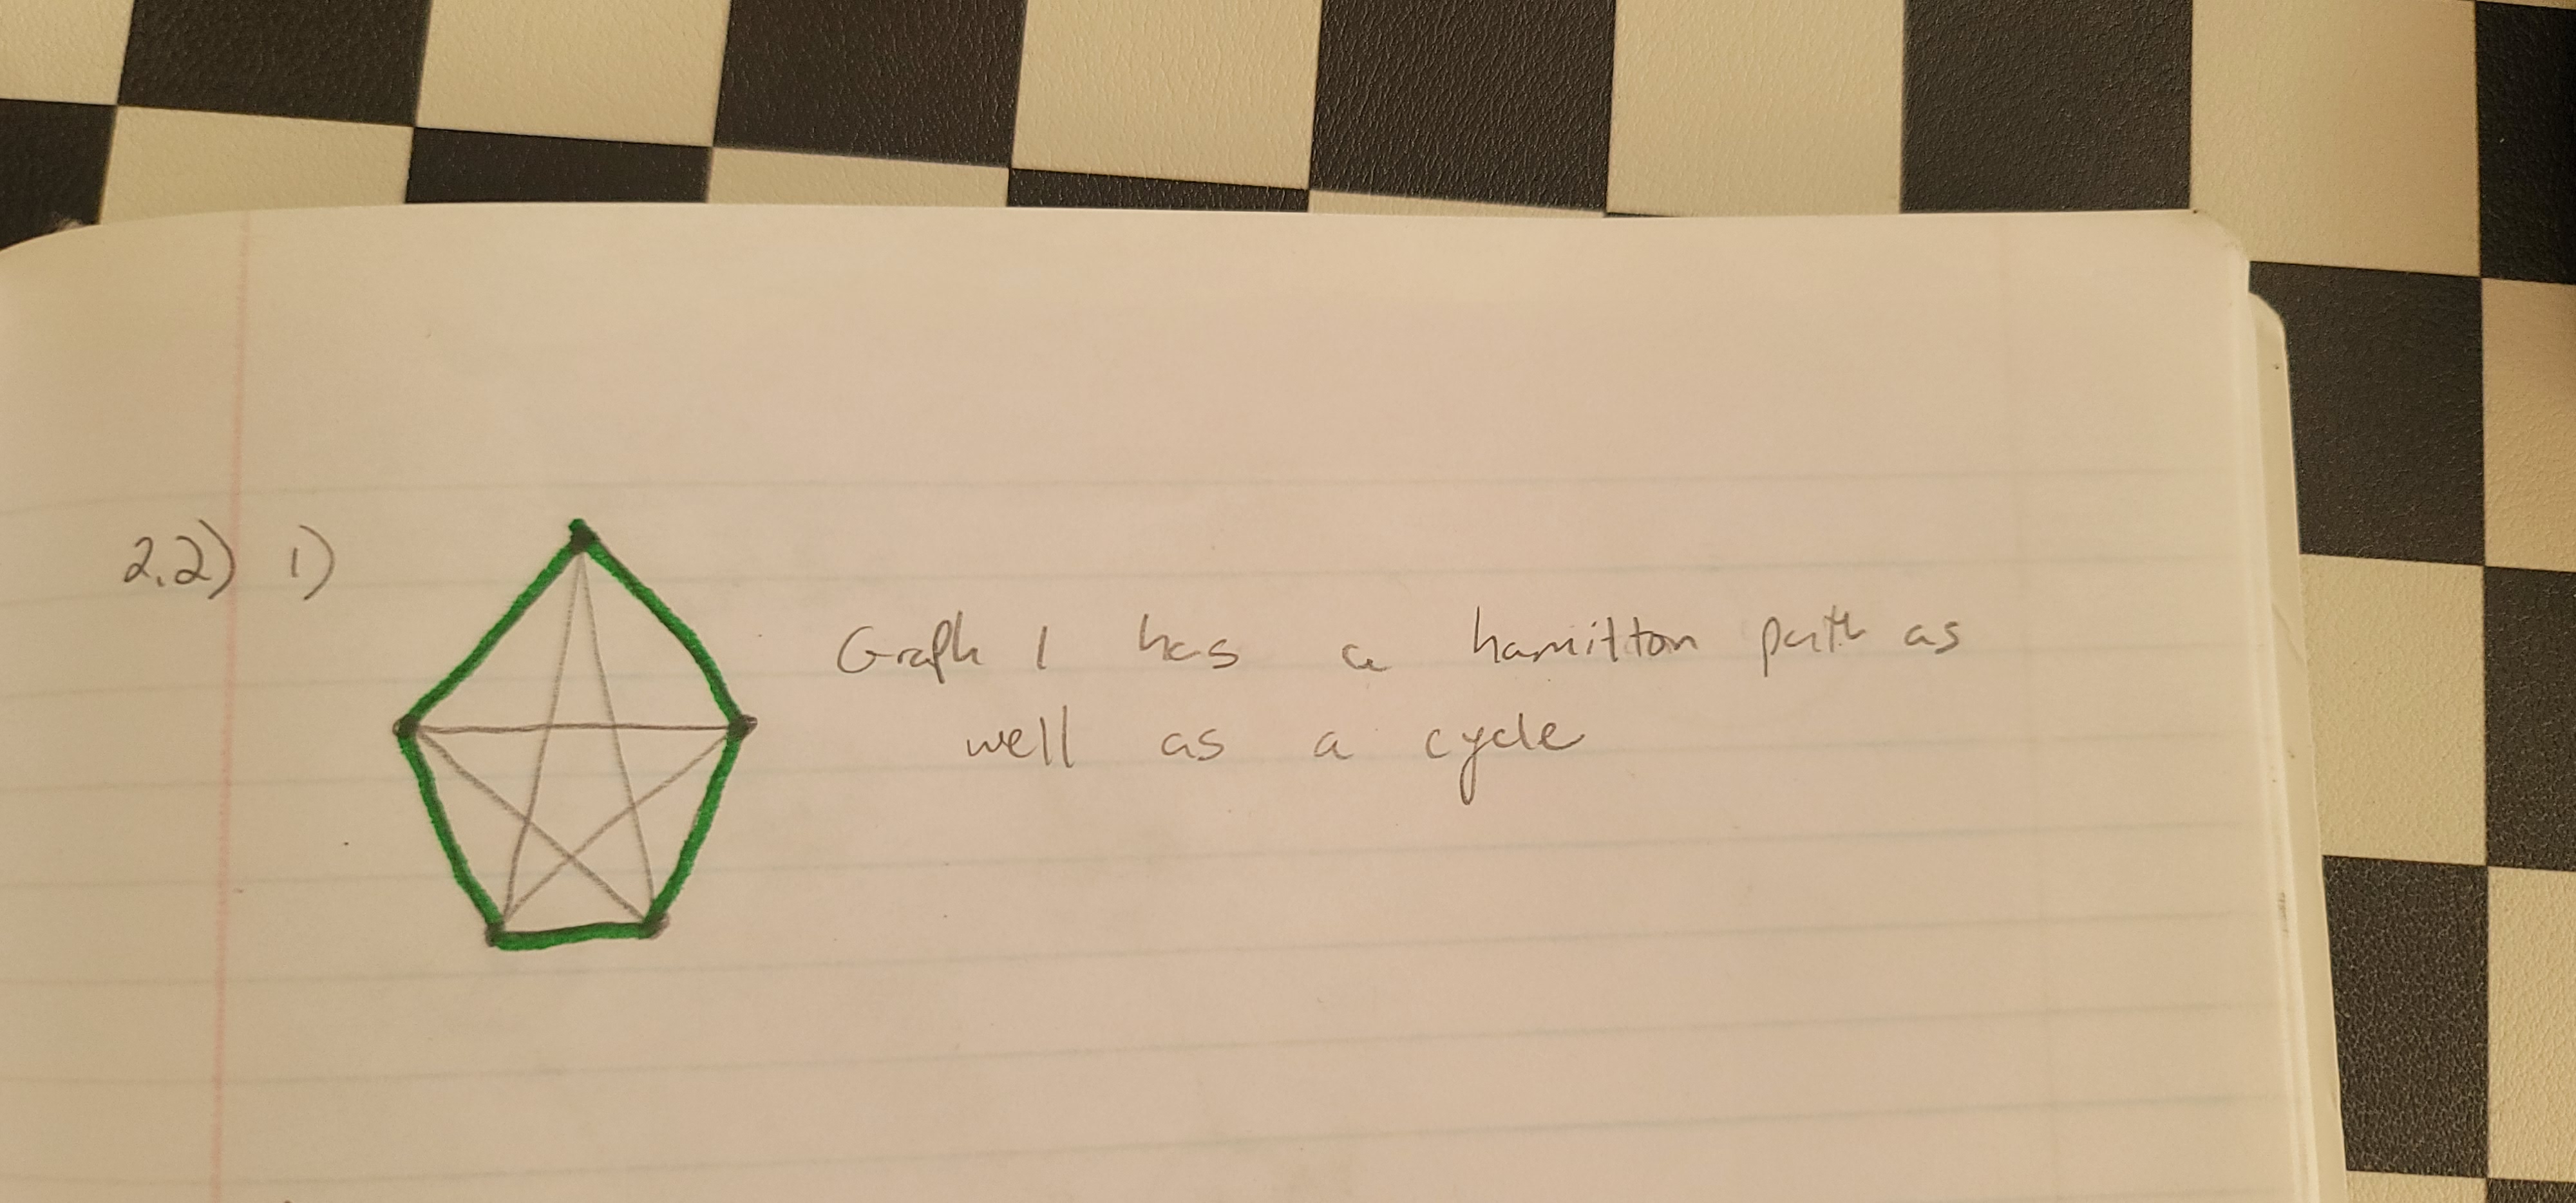 2.2) 1)
Graph 1 has a hamilton path as
well as a cycle